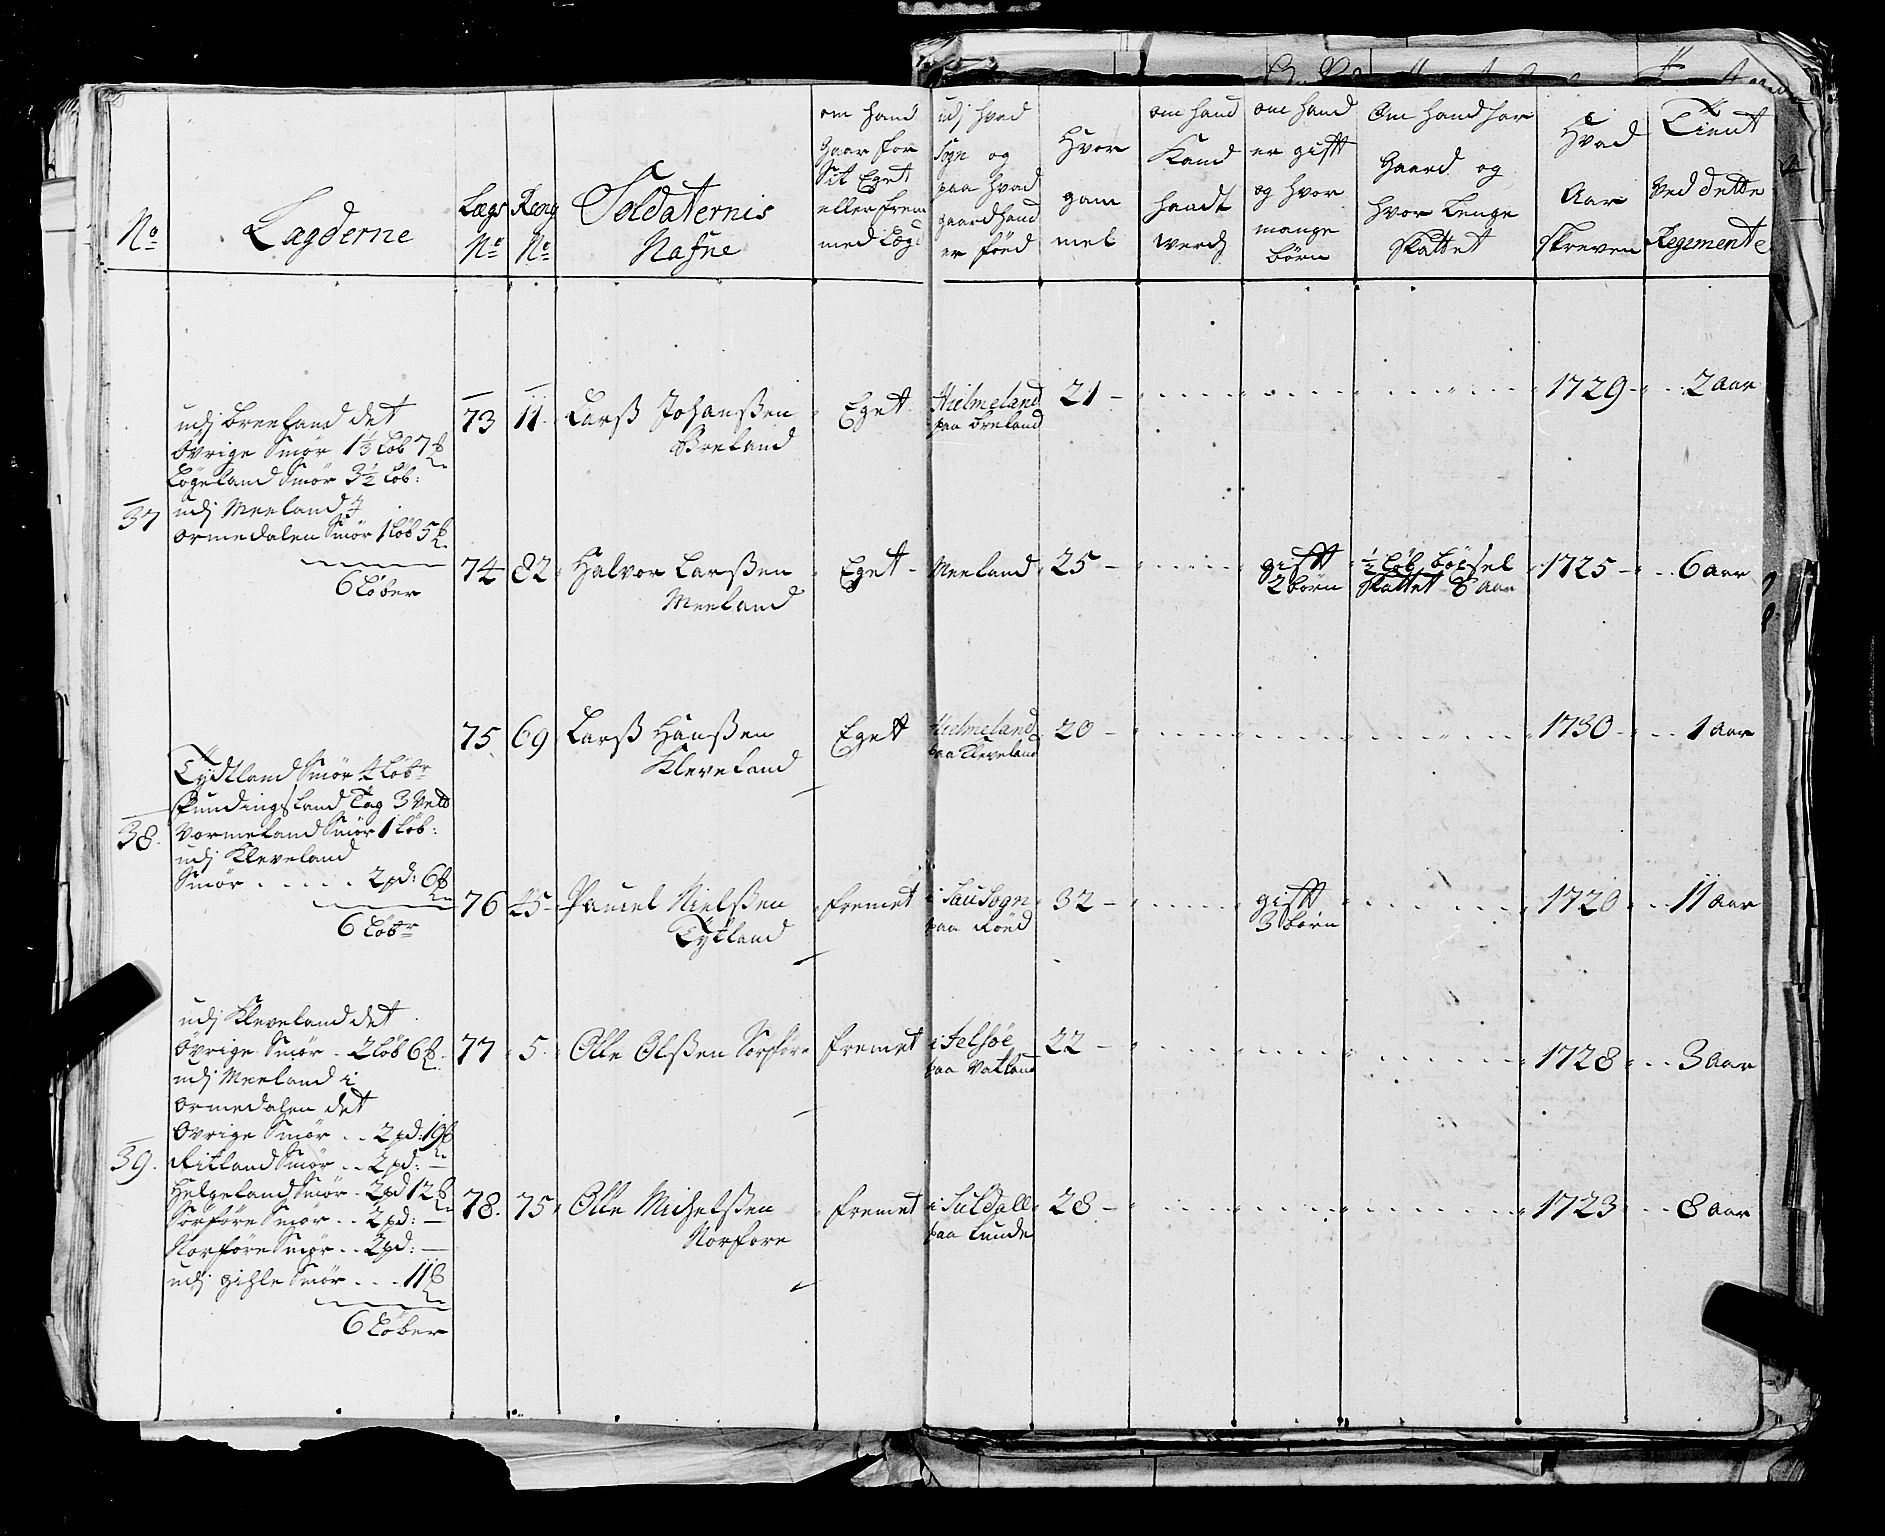 No
Lægderne
Lægs No
Reng No
Soldaternis Nafne
om hand gaar for Sit Eget eller frem med Læg
udj hvad Sogn og paa hvad gaard hand er föed
Hvor gam mel
om hand Kand haadt werch
om hand er gifft og hvor mange börn
Om hand har gaard og hvor Lenge skattet
Hvad Aar skreven
Tient Ved dette Regemente
37
udj Breeland det
Övrige Smör 1⅓ Löb 7
Lögeland Smör 3½ Löb:
udj Meeland i
Ormedalen Smör 1 Löb 5
6 Löber
73 11 Larß Johanßen Breland Eget Hielmeland paa Breland 21 1729 2 Aar
74 82 Halvor Larßen Meeland Eget Meeland 25 gifft 2 börn ½ Löb böxsel skattet 8 Aar 1725 6 aar
38
Tydtland Smör 4 Löbr
skundingsland Tag 3 Vett
Vormeland Smör 1 Löb:
udj Kleveland
Smör 2 pd: 6
6 Löbr
75 69 Larß Hanßen Kleveland Eget Hielmeland paa Kleveland 20 1730 1 Aar
76 45 Pauel Nielßen Tytland fremet i Sau Sogn paa Röed 32 gifft 3 börn 1720 11 Aar
39.
udj Kleveland det
Övrige Smör 2 Löb 6
udj Meeland i
Ormedalen det
Övrige Smör 2 pd: 19
Ritland Smör 2 pd:
Helgeland Smör 2 pd 12
Sörföre Smör 2 pd:
Norföre Smör 2 pd:
udj gihle Smör 11
6 Löber
77 5 Olle Olßen Sörföre fremet i Jelsöe paa Vatland 22 1728 3 aar
78. 75 Olle Michelßen Norfore fremet i Suldall paa Lunde 28 1723 8 aar